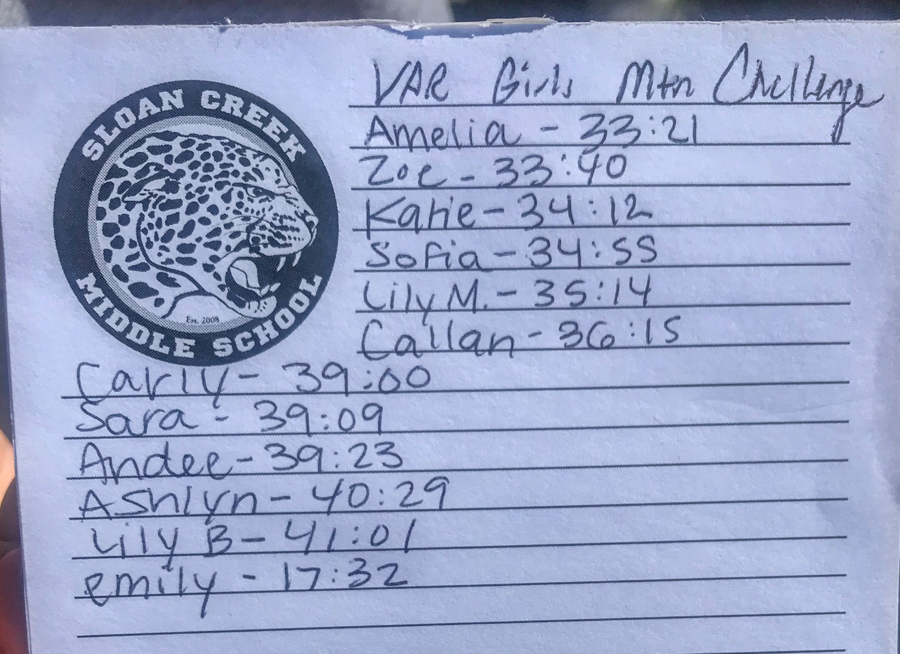 SLOAN CREEK
MIDDLE SCHOOL
Est. 2008
VAR Girls Mtn Challenge
Amelia - 33:21
Zoe - 33:40
Katie - 34:12
Sofia - 34:55
Lily M. - 35:14
Callan - 36:15
Carly - 39:00
Sara - 39:09
Andee - 39:23
Ashlyn - 40:29
Lily B - 41:01
emily - 17:32